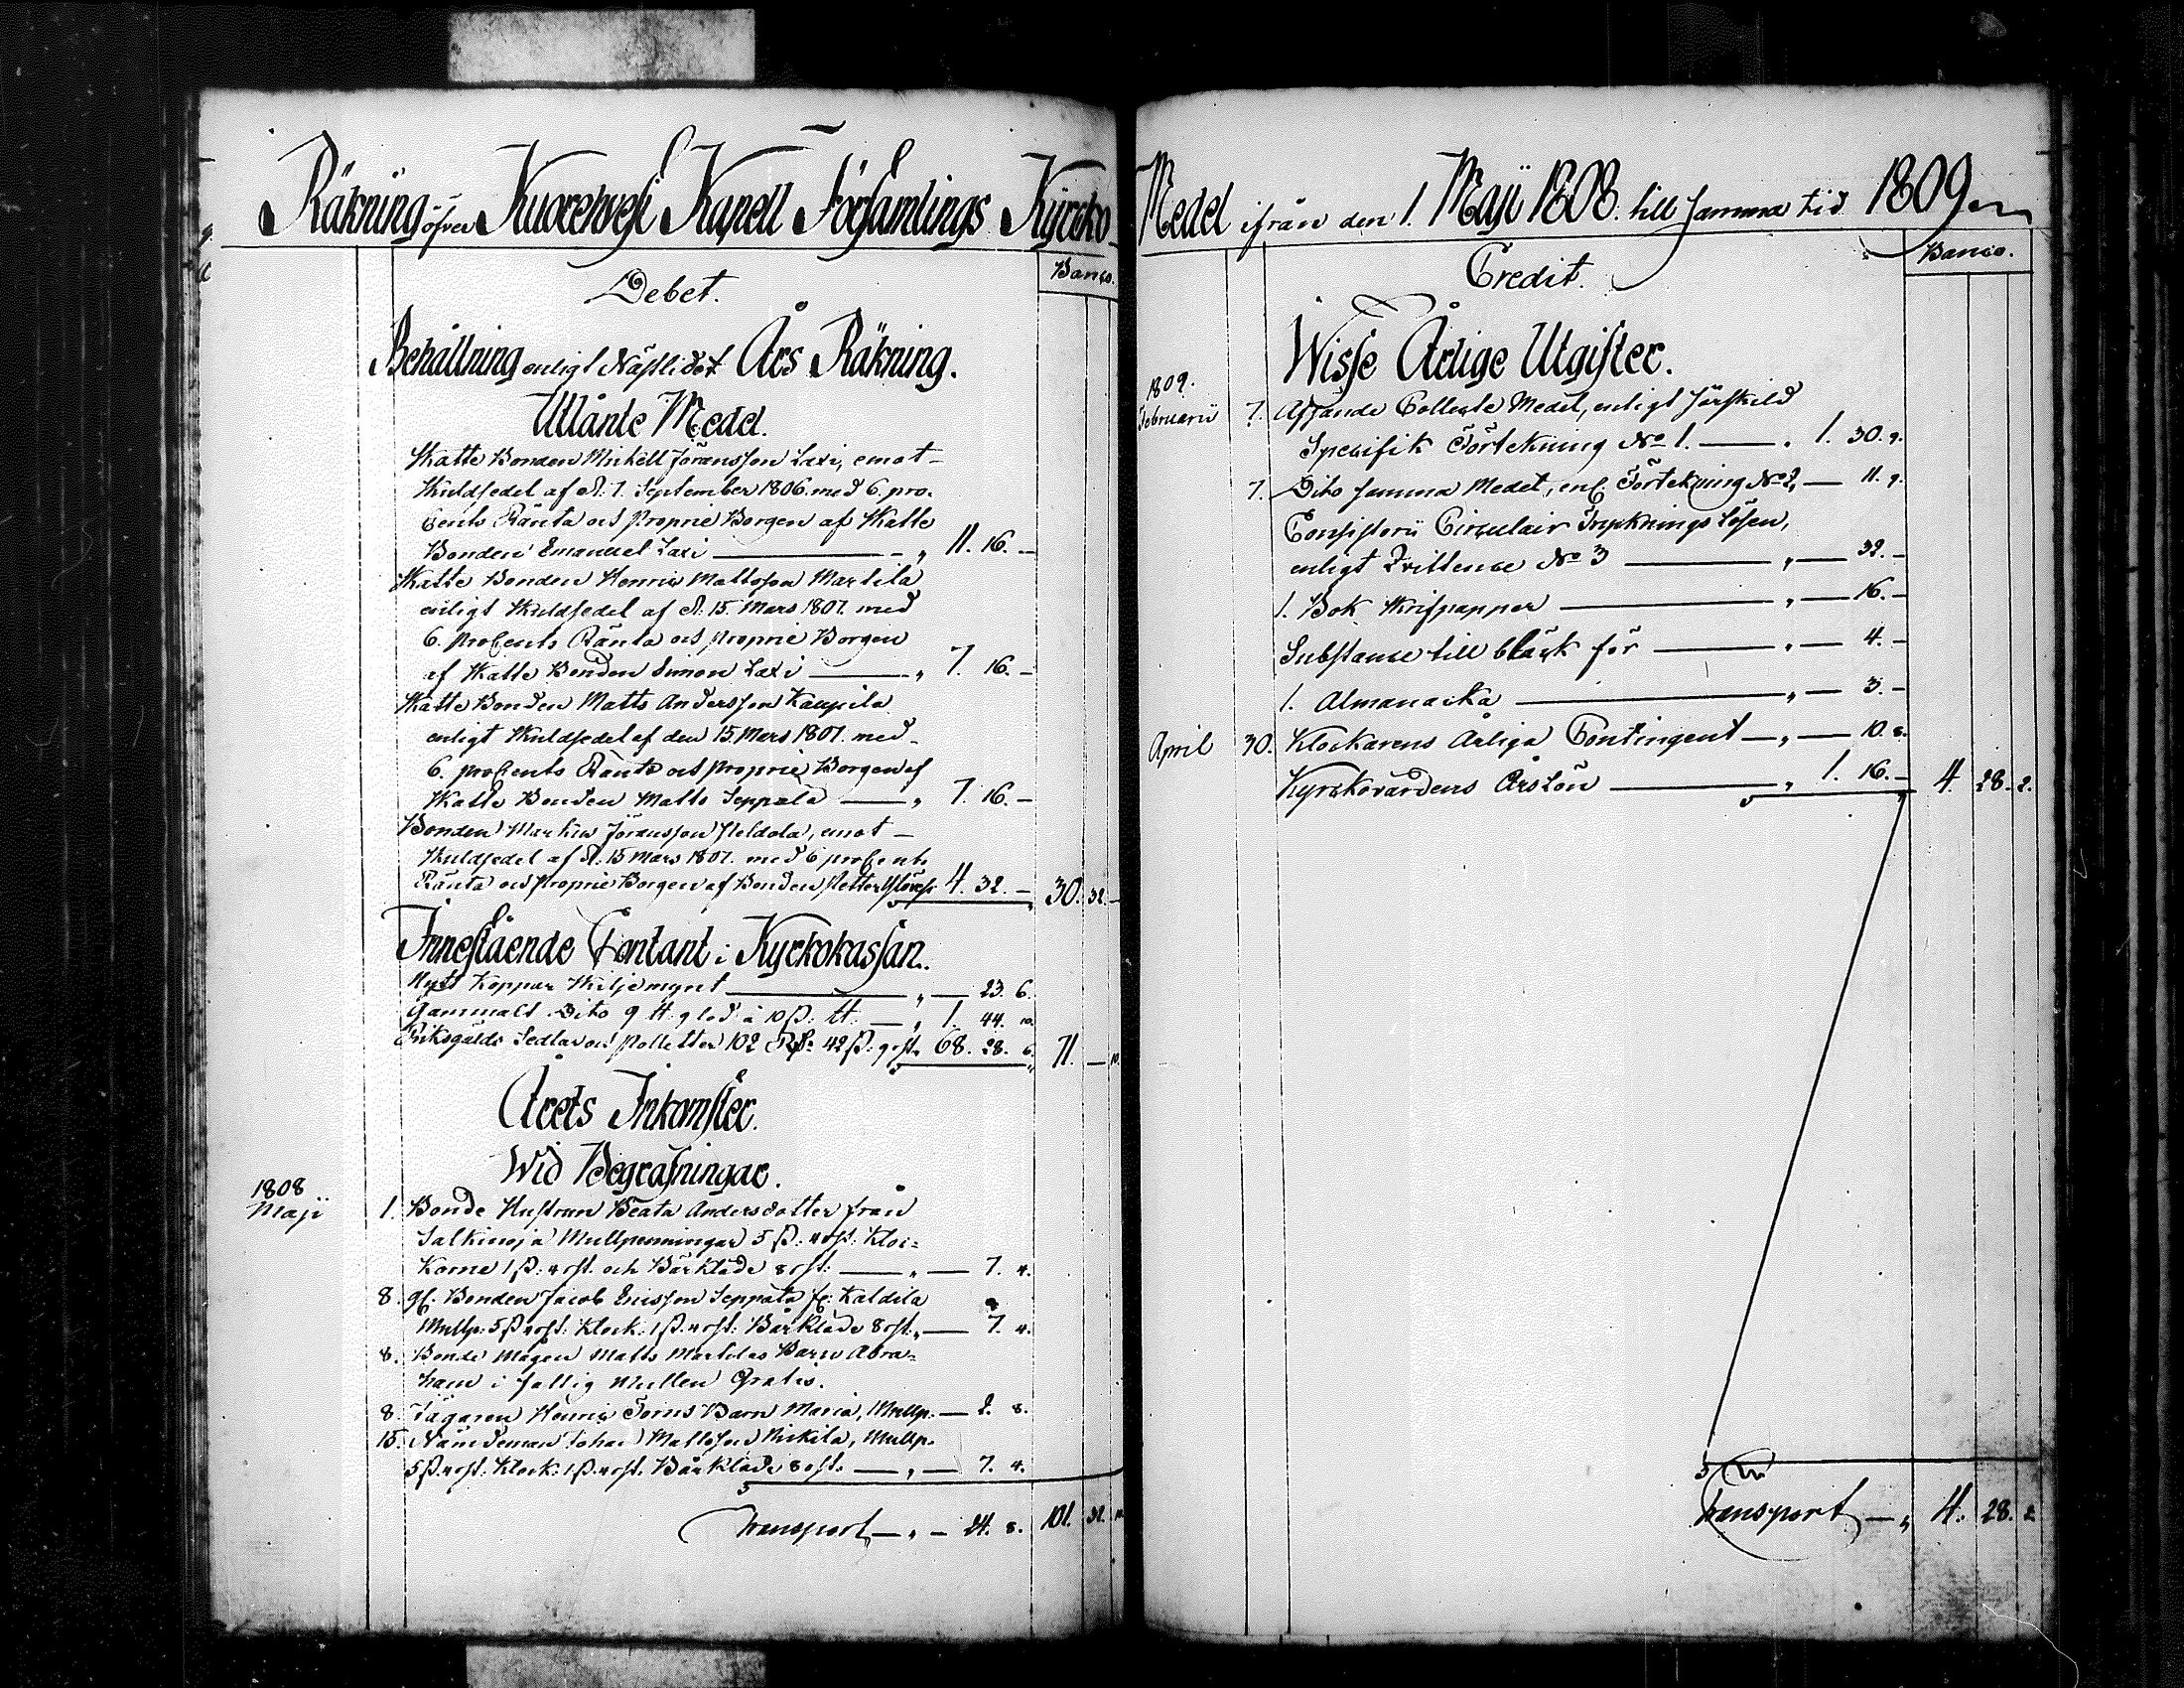 Räkning öfver Kuorehvesi Kapell Församlings Kyrcko
Debet.
Banco.
Behållning enligt Näslidet Års Räkning.
Utlånte Medel.
Skatte Bonden Mickell Jöransson Laxi, emot
Skuldsedel af d. 7. September 1806. med 6. pro
Cents Ränta och Proprie Borgen af Skatte
Bonden Emanuel Laxi — „ 11. 16. —
Skatte Bonden Henric Mattsson Martila
enligt Skuldsedel af d. 15. Mars 1807. med
6. proCents Ränta och proprie Borgen
af Skatte Bonden Simon Laxi — „ 7. 16. —
Skatte Bonden Matts Andersson Kaupila
enligt Skuldsedel af den 15. Mars 1807. med
6. proCents Ränta och proprie Borgen af
Skatte Bonden Matts Seppälä — „ 7. 16. —
Bonden Markus Jöransson Heldola, emot
Skuldsedel af d. 15 Mars 1807. med 6 proCents
Ränta och Proprie Borgen af Bonden Petter 4. 32. — 30. 32. —
Innestående Contant i Kyrkokassan.
Nytt Koppar Skiljemynt — „ — 23. 6.
Gammalt Dito 9 ℔ 9 lod à 10 ß: ℔: — „ 1. 44. 10.
Riksgälds Sedlar och Polletter 102 Rd: 42 ß: 9 rst. 68. 28. 6. 71. — 10.
Årets Inkomster.
Wid Begrafningar.
1808
Maji 1. Bonde Hustrun Beata Andersdotter från
Salkinoja Mullpenningar 5 ß: 4 rst: Kloc=
korne 1 ß: 4 rst. och Bårkläde 8 rst: — „ — 7. 4.
8. gl. Bonden Jacob Ericsson Seppälä fr: Kaldila
Mullp: 5 ß 4 rst: Klock: 1 ß. 4 rst: Bårkläde 8 rst. „ — 7. 4.
8. Bonde Mågen Matts Martilas Barn Abra=
ham i fattig Mullen Gratis.
8. Jägaren Henric Forns Barn Maria, Mullp. — 2. 8.
15. Nämdeman Johan Mattsson Mikila, Mullp.
5 ß. 4 rst: Klock: 1 ß. 4 rst. Bårkläde 8 rst. — „ — 7. 4.
Transport — „ — 24. 8. 101. 32. 10.
Medel ifrån den 1. Maji 1808. till samma tid 1809.
Credit.
Banco.
Wisse Årlige Utgifter.
1809.
Februarii 7. Afsände Collecte Medel, enligt särskild
Specifik Förtekning No 1. — „ 1. 30. 9.
7. Dito samma Medel, enl. Förtekning No 2, — 11. 9.
Consistorii Circulair Tryknings Lösen,
enligt Qvittence No 3 — „ — 32. —
1. Bok Skrifpapper — „ — 16. —
Substance till bläck för — „ — 4. —
1. Almanacka — „ — 3. —
April 30. Klockarens Årliga Contingent — „ — 10. 8.
Kyrkovärdens Årslön — „ 1. 16. — 4. 28. 2.
Transport — „ 4. 28. 2.